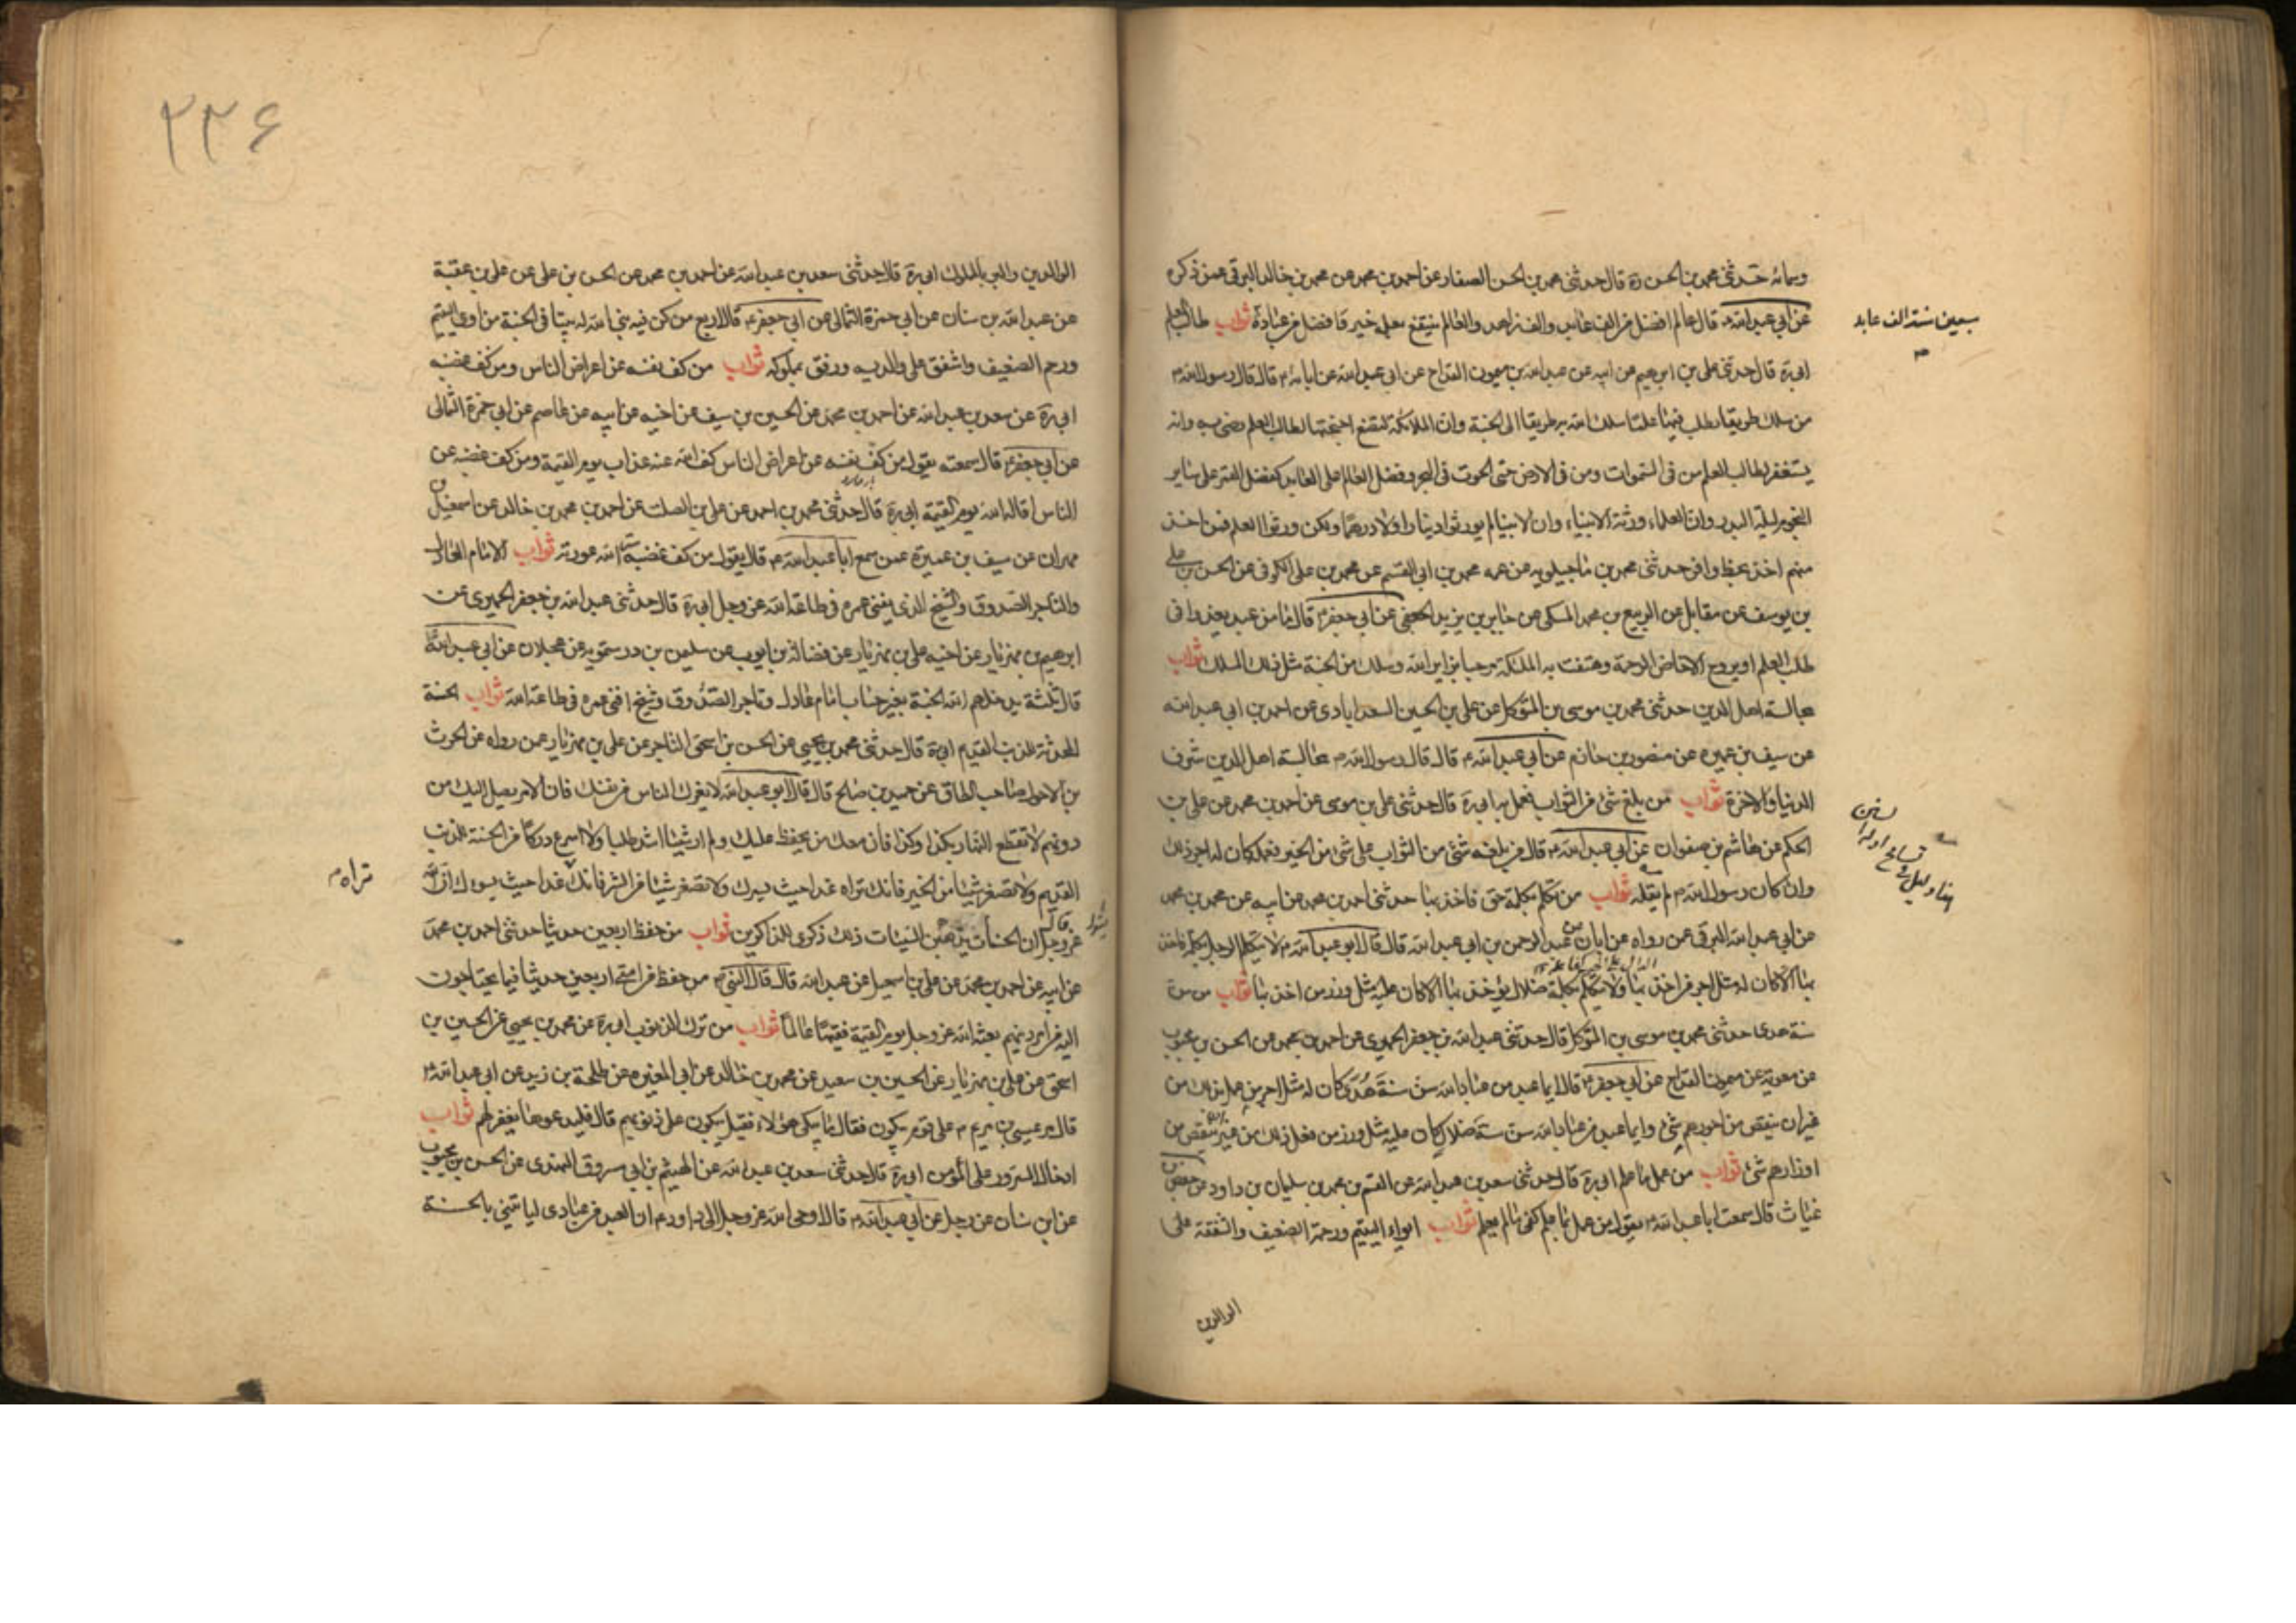 وسأله حدثنى محمد بن الحسن ره قال حدثنى محمد بن الحسن الصفار عن احمد بن محمد عن محمد بن خالد البرقى عمن ذكره
عن ابى عبد الله ء قال عالم افضل من الف عابد والف زاهد والعالم ينتفع بعلمه خير وافضل من عبادة ثواب طالب العلم
سبعين ستة الف عابد
ابى ره قال حدثنى على بن ابرهيم عن ابيه عن عبد الله بن ميمون القداح عن ابى عبد الله عن ابائه م قال قال رسول الله م
من سلك طريقا يطلب فيها علما سلك الله به طريقا الى الجنة وان الملائكة لتضع اجنحتها لطالب العلم رضى به وانه
يستغفر لطالب العلم من فى السموات ومن فى الارض حتى الحوت فى البحر وفضل العالم على العابد كفضل القمر على ساير
النجوم ليلة البدر وان العلماء ورثة الانبياء وان الانبيا لم يورثوا دينارا ولا درهما ولكن ورثوا العلم فمن اخذ
منهم اخذ بحظ وافر حدثنى محمد بن ماجيلويه عن عمه محمد بن ابى القسم عن محمد بن على الكوفى عن الحسن بن على
بن يوسف عن مقاتل عن الربيع بن محمد المسلى عن جابر بن يزيد الجعفى عن ابى جعفر ء قال ما من عبد يغدو فى
طلب العلم او يروح الا خاض الرحمة وهتفت به الملئكة مرحبا بزاير الله وسلك من الجنة مثل ذلك المسلك ثواب
مجالسة اهل الدين حدثنى محمد بن موسى بن المتوكل عن على بن الحسين السعدابادى عن احمد بن ابى عبد الله
عن سيف بن عميره عن منصور بن حازم عن ابى عبد الله م قال قال رسول الله م مجالسة اهل الدين شرف
الدنيا والاخرة ثواب من بلغه شئ من الثواب فعمل به ابى ره قال حدثنى على بن موسى عن احمد بن محمد عن على بن
الحكم عن هاشم بن صفوان عن ابى عبد الله م قال من بلغه شئ من الثواب على شئ من الخير فعمله كان له اجر ذلك
وان كان رسول الله م لم يقله ثواب من تكلم بكلمة حق فاخذ بها حدثنى احمد بن محمد عن ابيه عن محمد بن محمد
عن ابى عبد الله البرقى عمن رواه عن ابان عن عبد الرحمن بن ابى عبد الله قال قال ابو عبد الله م لا يتكلم الرجل بكلمة فاخذ
بها الا كان له مثل اجر من اخذ بها ولا يتكلم بكلمة ضلال يؤخذ بها الا كان عليه مثل وزر من اخذ بها ثواب من سن
سنة هدى حدثنى محمد بن موسى بن المتوكل قال حدثنى عبد الله بن جعفر الحميرى عن احمد بن محمد عن الحسن بن محبوب
عن معوية عن ميمون القداح عن ابى جعفر ء قال ايما عبد من عباد الله سن سنة هدى كان له مثل اجر من عمل بذلك من
غير ان ينقص من اجورهم شئ وايما عبد من عباد الله سن سنة ضلال كان عليه مثل وزر من فعل ذلك من غير ان ينقص من
اوزارهم شئ ثواب من عمل بما علم ابى ره قال حدثنى سعد بن عبد الله عن القسم بن محمد بن سليمان بن داود عن حفص بن
غياث قال سمعت ابا عبد الله م يقول من عمل بما علم كفى ما لم يعلم ثواب ايواء اليتيم ورحمة الضعيف والشفقة على
الوالدين
٢٣۶
الوالدين والبر بالملوك ابى ره قال حدثنى سعد بن عبد الله عن احمد بن محمد عن الحسن بن على عن على بن عقبة
عن عبد الله بن سنان عن ابى حمزة الثمالى عن ابى جعفر ء قال اربع من كن فيه بنى الله له بيتا فى الجنة من اوى اليتيم
ورحم الضعيف واشفق على والديه ورفق بمملوكه ثواب من كف نفسه عن اعراض الناس ومن كف غضبه
ابى ره عن سعد بن عبد الله عن احمد بن محمد عن الحسين بن سيف عن اخيه عن ابيه عن عاصم عن ابى حمزة الثمالى
عن ابى جعفر ء قال سمعته يقول من كف نفسه عن اعراض الناس كف الله عنه عذاب يوم القيمة ومن كف غضبه عن
الناس اقاله الله يوم القيمة ابى ره قال حدثنى محمد بن احمد عن على بن الصلت عن احمد بن محمد بن خالد عن اسمعيل بن
مهران عن سيف بن عميرة عمن سمع ابا عبد الله م قال يقول من كف غضبه ستر الله عورته ثواب الامام العادل
والتاجر الصدوق والشيخ الذى يفنى عمره فى طاعة الله عز وجل ابى ره قال حدثنى عبد الله بن جعفر الحميرى عن
ابرهيم بن مهزيار عن اخيه على بن مهزيار عن فضالة بن ايوب عن سليمن بن درستويه عن عجلان عن ابى عبد الله ء
قال ثلثة يدخلهم الله الجنة بغير حساب امام عادل وتاجر الصدوق وشيخ افنى عمره فى طاعة الله ثواب الحسنة
المحدثة للذنب القديم ابى ره قال حدثنى محمد بن يحيى عن الحسن بن اسحق التاجر عن على بن مهزيار عمن رواه عن الحرث
بن الاحول صاحب الطاق عن حميد بن صالح قال قال ابو عبد الله لا يغرك الناس من نفسك فان الامر يصل اليك من
دونهم لا تقطع النهار بكذا وكذا فان معك من يحفظ عليك ولم ار شيئا اشد طلبا ولا اسرع دركا من الحسنة للذنب
القديم ولا تصغر شيئا من الخير فانك تراه غدا حيث يسرك ولا تصغر شيئا من الشر فانك غدا حيث يسوءك ان الله
تراه م
عز وجل قال ان الحسنات يذهبن السيئات ذلك ذكرى للذاكرين ثواب من حفظ اربعين حديثا حدثنى احمد بن محمد
عن ابيه عن احمد بن محمد عن على بن اسمعيل عن عبد الله قال قال النبى م من حفظ من امتى اربعين حديثا فيما يحتاجون
اليه من امر دينهم بعثه الله عز وجل يوم القيمة فقيها عالما ثواب من ترك الذنوب ابى ره عن محمد بن يحيى عن الحسين بن
اسحق عن على بن مهزيار عن الحسين بن سعيد عن محمد بن خالد عن ابى المغيره عن طلحة بن زيد عن ابى عبد الله م
قال مر عيسى بن مريم م على قوم يبكون فقال ما يبكى هؤلاء فقيل يبكون على ذنوبهم قال فليدعوها يغفر لهم ثواب
ادخال السرور على المؤمن ابى ره قال حدثنى سعد بن عبد الله عن الهيثم بن ابى مسروق النهدى عن الحسن بن محبوب
عن ابن سنان عن رجل عن ابى عبد الله م قال اوحى الله عز وجل الى داود م ان العبد من عبادى لياتينى بالحسنة